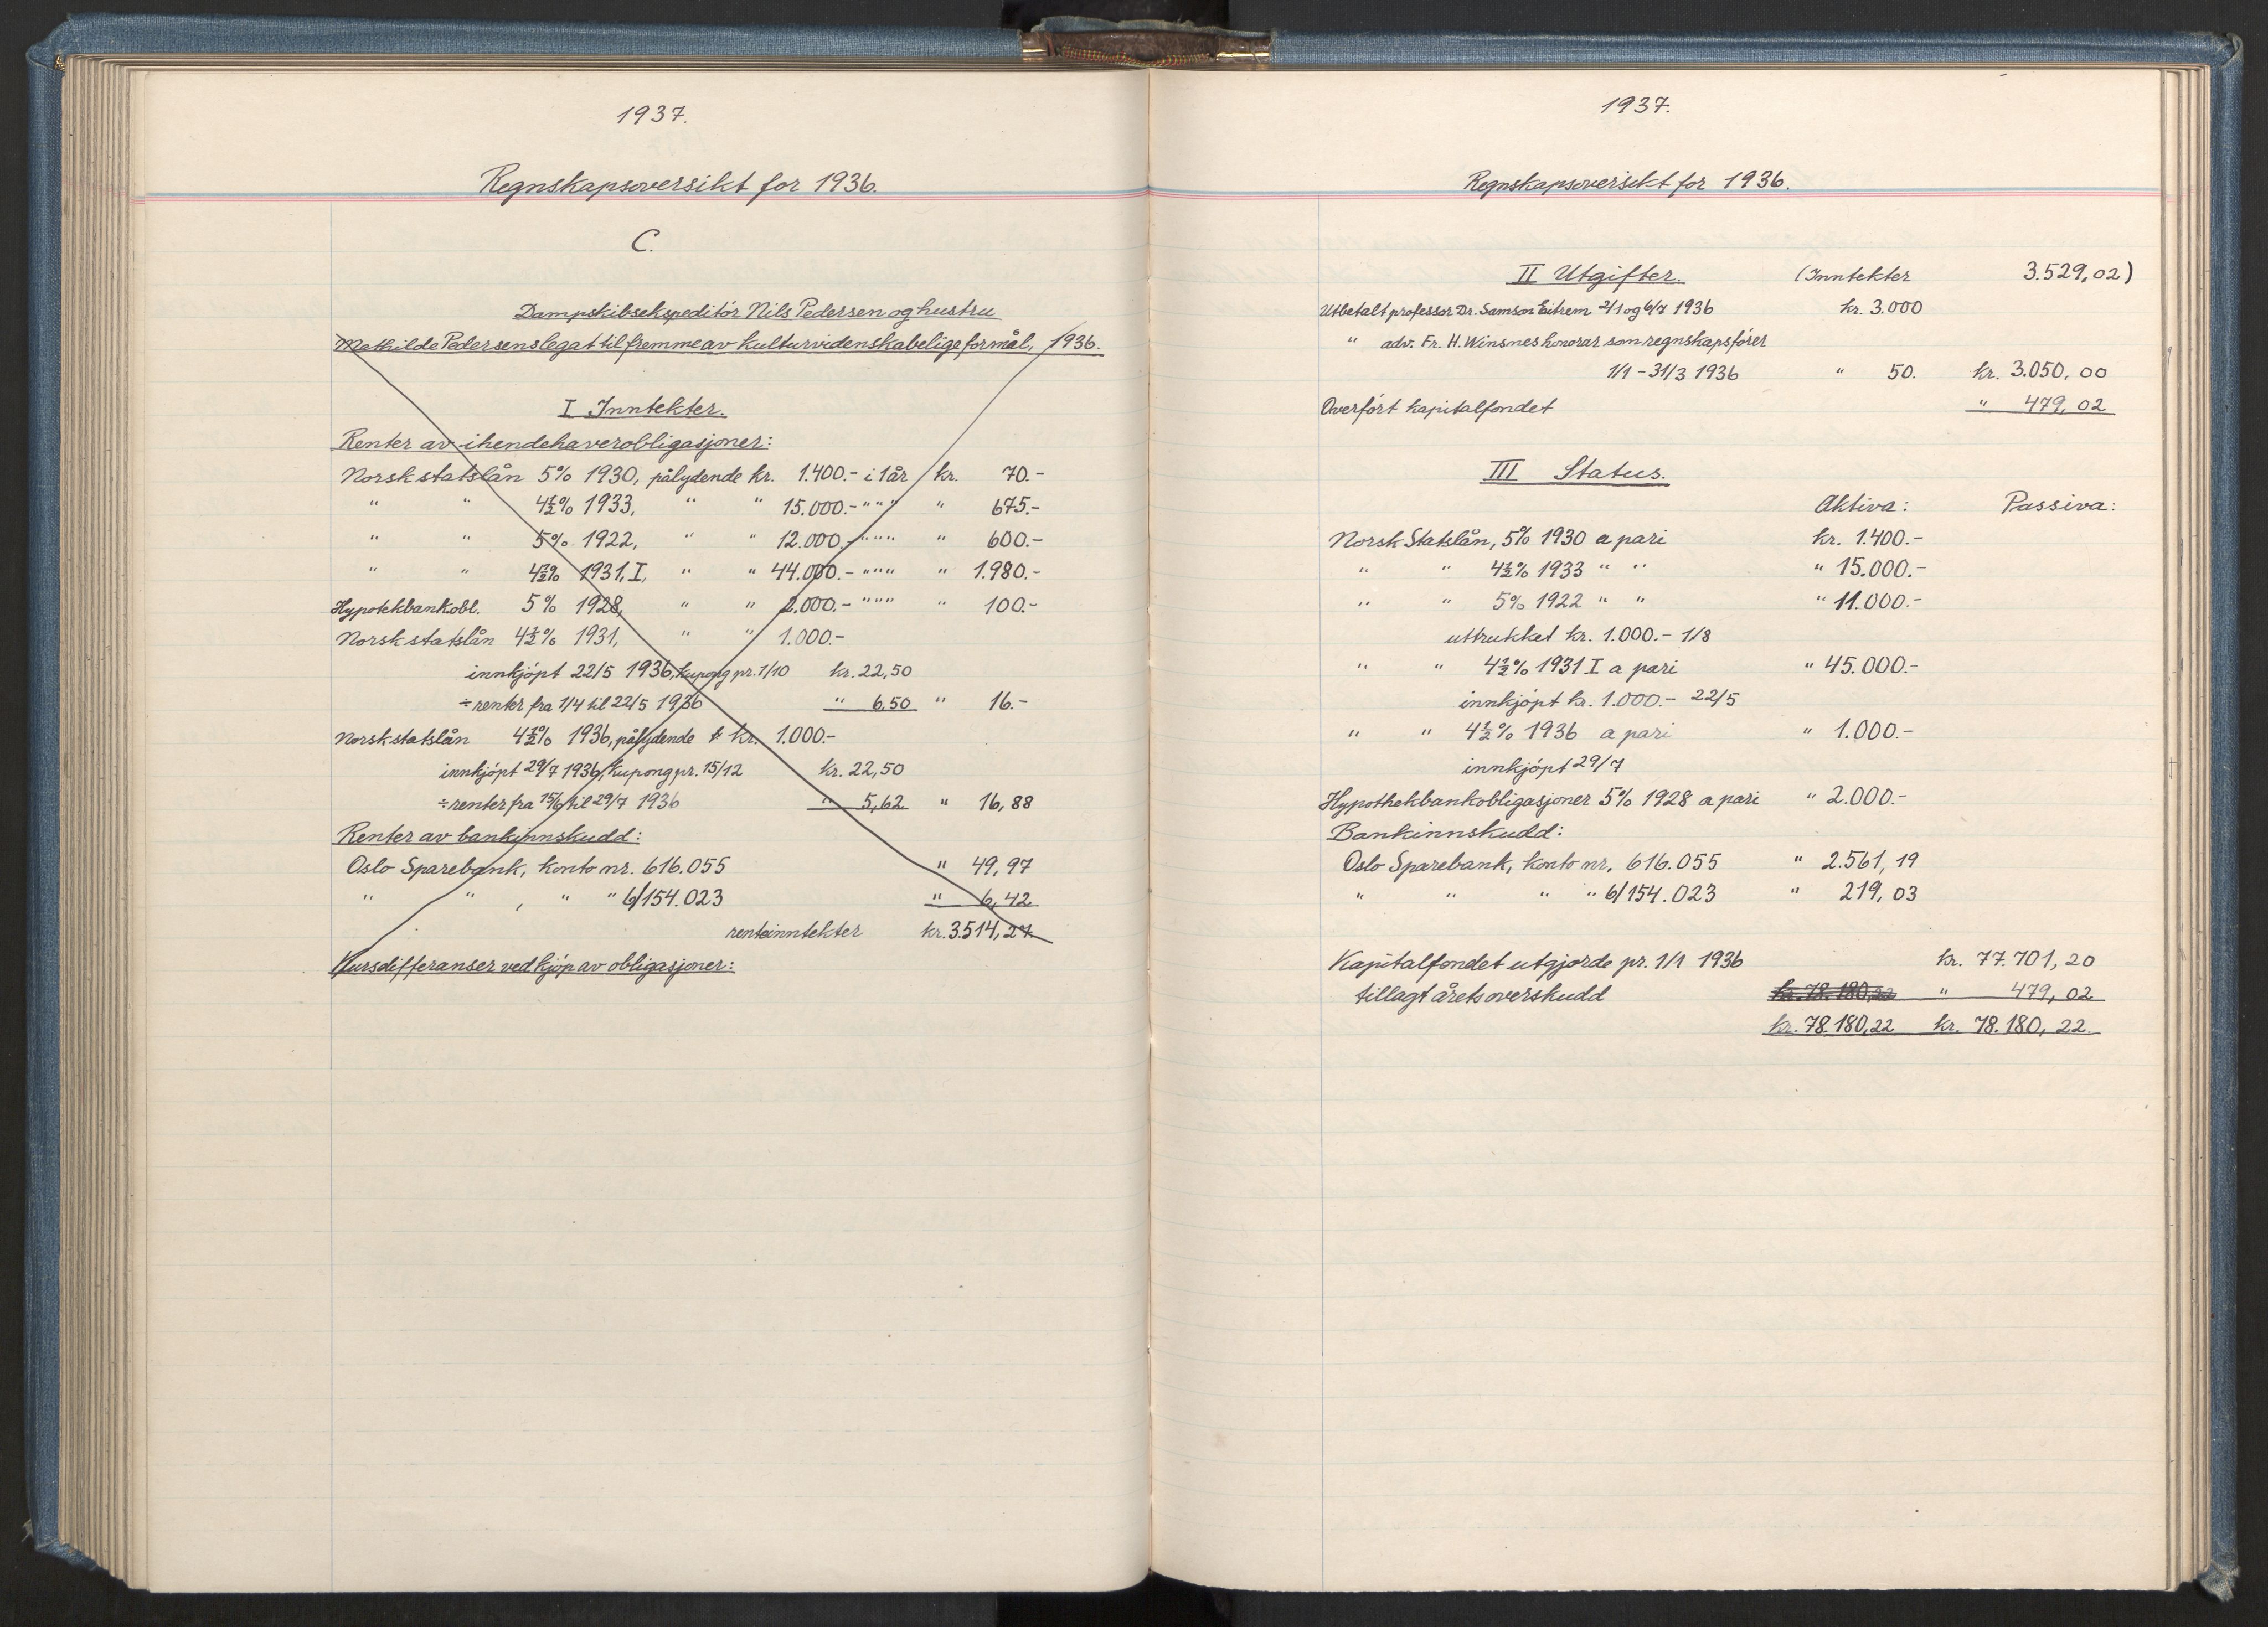 1937.
Regnskapsoversikt for 1936.
C.
Dampskibsekspeditör Nils Pedersen og hustru
Mathilde Pedersens legat til fremme av kulturvidenskabelige formål, 1936.
I Inntekter.
Renter av ihendehaverobligasjoner:
Norsk statslån 5% 1930, pålydende kr. 1.400.- i 1 år kr. 70.-
" " 4½% 1933, " " 15.000.- " " " " 675.-
" " 5% 1922, " " 12.000.- " " " " 600.-
" " 4½% 1931, I, " " 44.000.- " " " " 1.980.-
Hypotekbankobl. 5% 1928, " " 2.000.- " " " " 100.-
Norsk statslån 4½% 1931, " " 1.000.-
innkjöpt 22/5 1936, kupong pr. 1/10 kr. 22,50
÷ renter fra 1/4 til 22/5 1936 " 6,50 " 16.-
Norsk statslån 4½% 1936, pålydende kr. 1.000.-
innkjöpt 29/7 1936, kupong pr. 15/12 kr. 22,50
÷ renter fra 15/6 til 29/7 1936 " 5,62 " 16,88
Renter av bankinnskudd:
Oslo Sparebank, konto nr. 616.055 " 49,97
" " , " " 6/154.023 " 6,42
renteinntekter kr. 3.514,27
Kursdifferanser ved kjöp av obligasjoner:
1937.
Regnskapsoversikt for 1936.
II Utgifter. (Inntekter 3.529,02)
Utbetalt professor Dr. Samson Eitrem 2/1 og 6/7 1936 kr. 3.000
" adv. Fr. H. Winsnes honorar som regnskapsförer
1/1 - 31/3 1936 " 50. kr. 3.050,00
Overfört kapitalfondet " 479,02
III Status.
Aktiva: Passiva:
Norsk Statslån, 5% 1930 a pari kr. 1.400.-
" " 4½% 1933 " " " 15.000.-
" " 5% 1922 " " " 11.000.-
uttrukket kr. 1.000.- 1/8
" " 4½% 1931 I a pari " 45.000.-
innkjöpt kr. 1.000.- 22/5
" " 4½% 1936 a pari " 1.000.-
innkjöpt 29/7
Hypothekbankobligasjoner 5% 1928 a pari " 2.000.-
Bankinnskudd:
Oslo Sparebank, konto nr. 616.055 " 2.561,19
" " " " 6/154.023 " 219,03
Kapitalfondet utgjorde pr. 1/1 1936 kr. 77.701,20
tillagt årets overskudd kr. 78.180,22 " 479,02
kr. 78.180,22 kr. 78.180,22